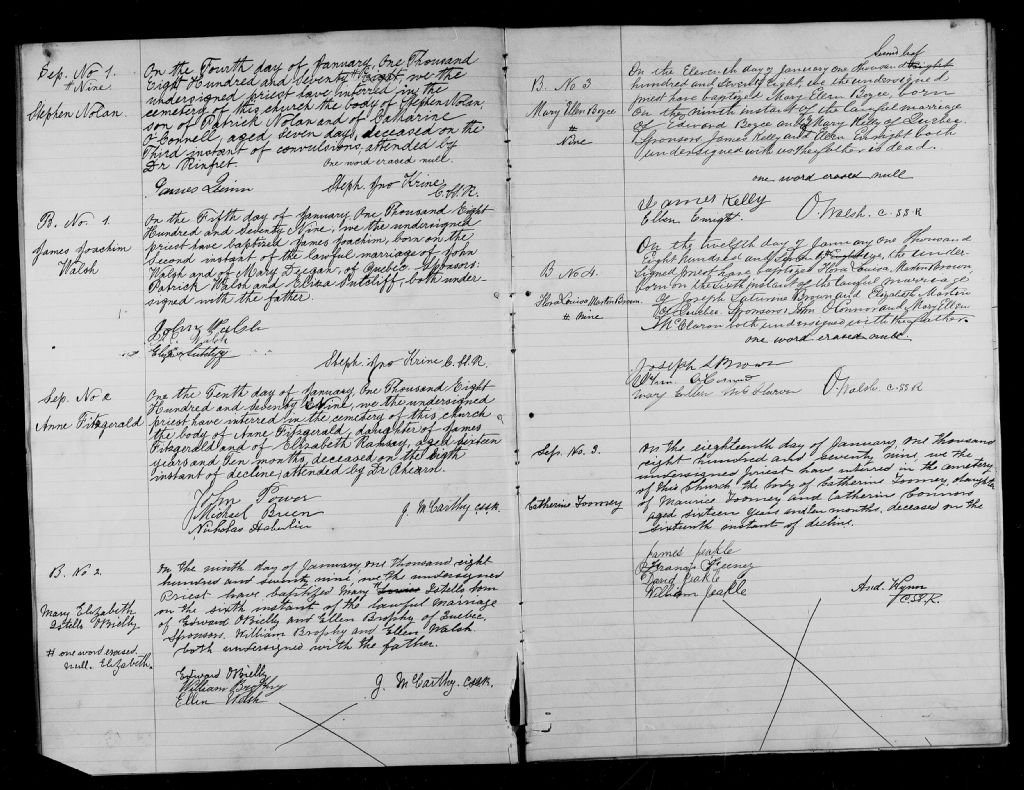 Sep. No 1.
# Nine.
Stephen Nolan.
On the Fourth day of January, One Thousand
Eight Hundred and Seventy # Eight, we the
undersigned priest have interred in the
cemetery of this church the body of Stephen Nolan,
son of Patrick Nolan and of Catharine
O'Connell, aged seven days, deceased on the
Third instant of convulsions, attended by
Dr Rinfret. one word erased null.
James Quinn Steph. Jno Krine
C.SS.R.
B. No. 1.
James Joachim
Walsh
On the Fifth day of January One Thousand Eight
Hundred and Seventy Nine, we the undersigned
priest have baptized James Joachim, born on the
Second instant of the lawful marriage of John
Walsh and of Mary Deegan, of Quebec. Sponsors:
Patrick Walsh and Eliza Sutcliff, both under-
signed with the father.
John Walsh
P. Walsh
Eliza Sutcliff
Steph. Jno Krine C.SS.R.
Sep. No 2
Anne Fitzgerald
On the Tenth day of January, One Thousand Eight
Hundred and seventy Nine, we the undersigned
priest have interred in the cemetery of this church
the body of Anne Fitzgerald, daughter of James
Fitzgerald and of Elizabeth Ramsay, aged sixteen
years and Ten months, deceased on the Eigth
instant of decline, attended by Dr Ahearn.
John Power
Michael Breen J. McCarthy CSSR.
Nicholas Haberlin
B. No 2.
Mary Elizabeth
Istella OBielly
# one word erased
null. Elizabeth.
On the ninth day of January one thousand eight
hundred and seventy nine, we the undersigned
Priest have baptized Mary # Istella born
on the sixth instant of the lawful marriage
of Edward OBielly and Ellen Brophy of Quebec,
Sponsors. William Brophy and Ellen Walsh.
both undersigned with the father.
Edward OBielly
William Brophy J. McCarthy. CSSR.
Ellen Walsh
B. No 3
Mary Ellen Boyce
#
Nine
On the Eleventh day of January one thousand eight
hundred and Seventy Eight, we the undersigned
priest have baptized Mary Ellen Boyce, born
on the ninth instant of the lawful marriage
of Edward Boyce and of Mary Kelly of Quebec.
Sponsors James Kelly and Ellen Enright both
undersigned with us the father is dead.
one word erased null
James Kelly
Ellen Enright. O. Walsh. C.SS.R
B No 4.
Flora Louisa Martin Brown.
# Nine
On the twelfth day of January one Thousand
Eight hundred and Seventy # Eight, we, the under-
signed priest have baptized Flora Louisa Martin Brown
born on the sixth instant of the lawful marriage
of Joseph Brown and Elizabeth Martin
of Quebec. Sponsors John O'Connor and Mary Ellen
McClaron both undersigned with the father.
one word erased null.
Joseph L Brown
O'Connor
Mary Ellen O. Walsh. C.SS.R
Sep. No. 3.
Catherine Toomey
On the eighteenth day of January, one thousand
eight hundred and seventy nine, we the
undersigned Priest have interred in the cemetery
of this Church the body of Catherine Toomey, daughter
of Maurice Toomey and Catherin Connors
aged sixteen years and ten months, deceased on the
sixteenth instant of decline.
James Jeakle
Francis Feeney
David Jeakle
William Jeakle And. Wynn
C.SS.R.